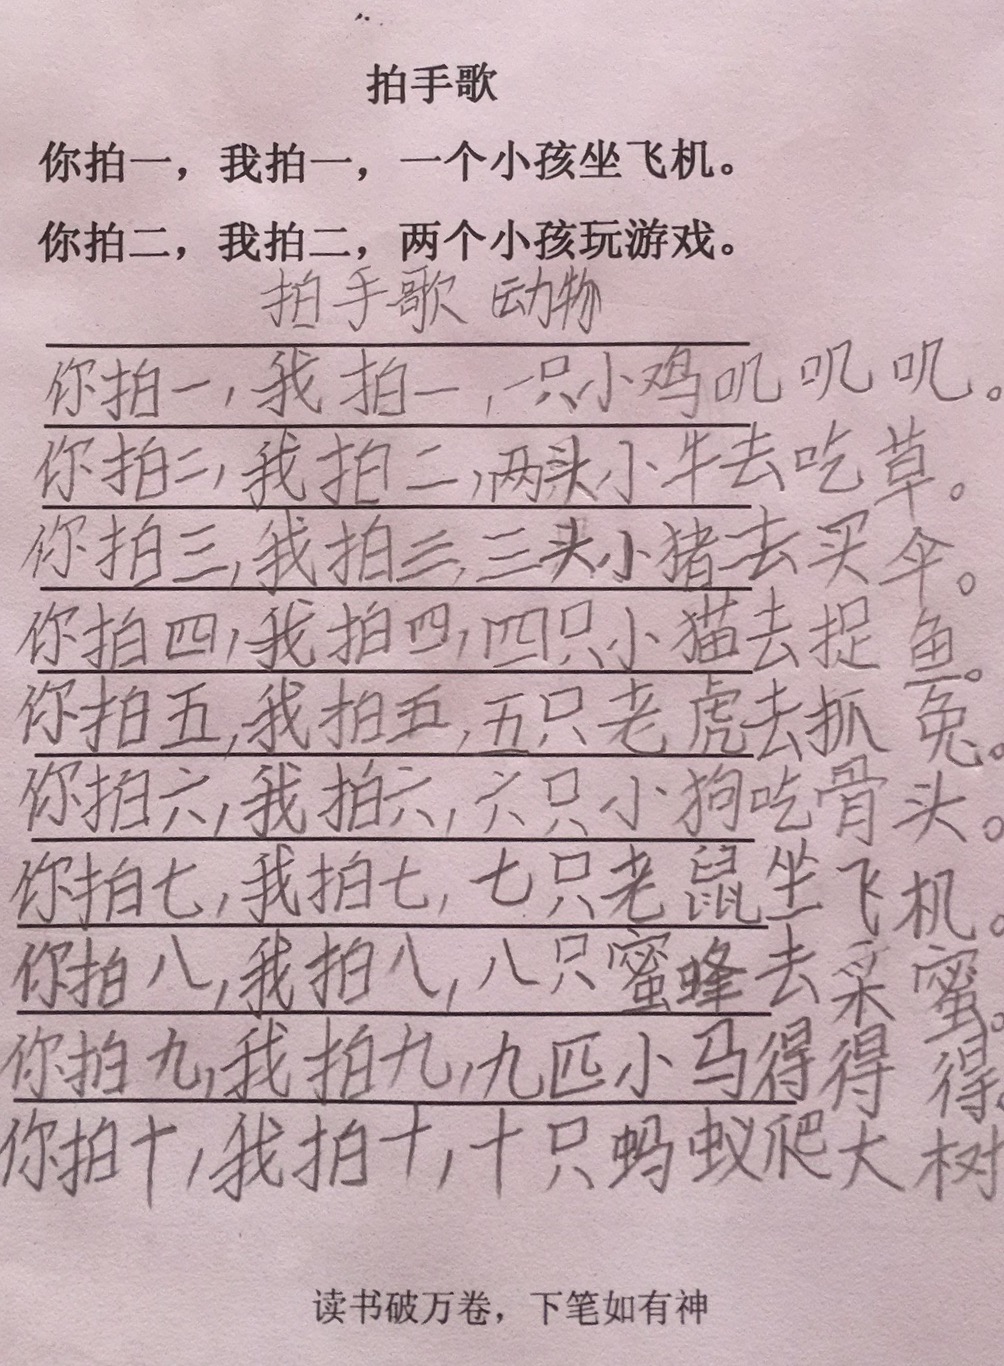 拍手歌
你拍一，我拍一，一个小孩坐飞机。
你拍二，我拍二，两个小孩玩游戏。
拍手歌 动物
你拍一，我拍一，一只小鸡叽叽叽。
你拍二，我拍二，两头小牛去吃草。
你拍三，我拍三，三头小猪去买伞。
你拍四，我拍四，四只小猫去捉鱼。
你拍五，我拍五，五只老虎去抓兔。
你拍六，我拍六，六只小狗吃骨头。
你拍七，我拍七，七只老鼠坐飞机。
你拍八，我拍八，八只蜜蜂去采蜜。
你拍九，我拍九，九匹小马得得得。
你拍十，我拍十，十只蚂蚁爬大树
读书破万卷，下笔如有神